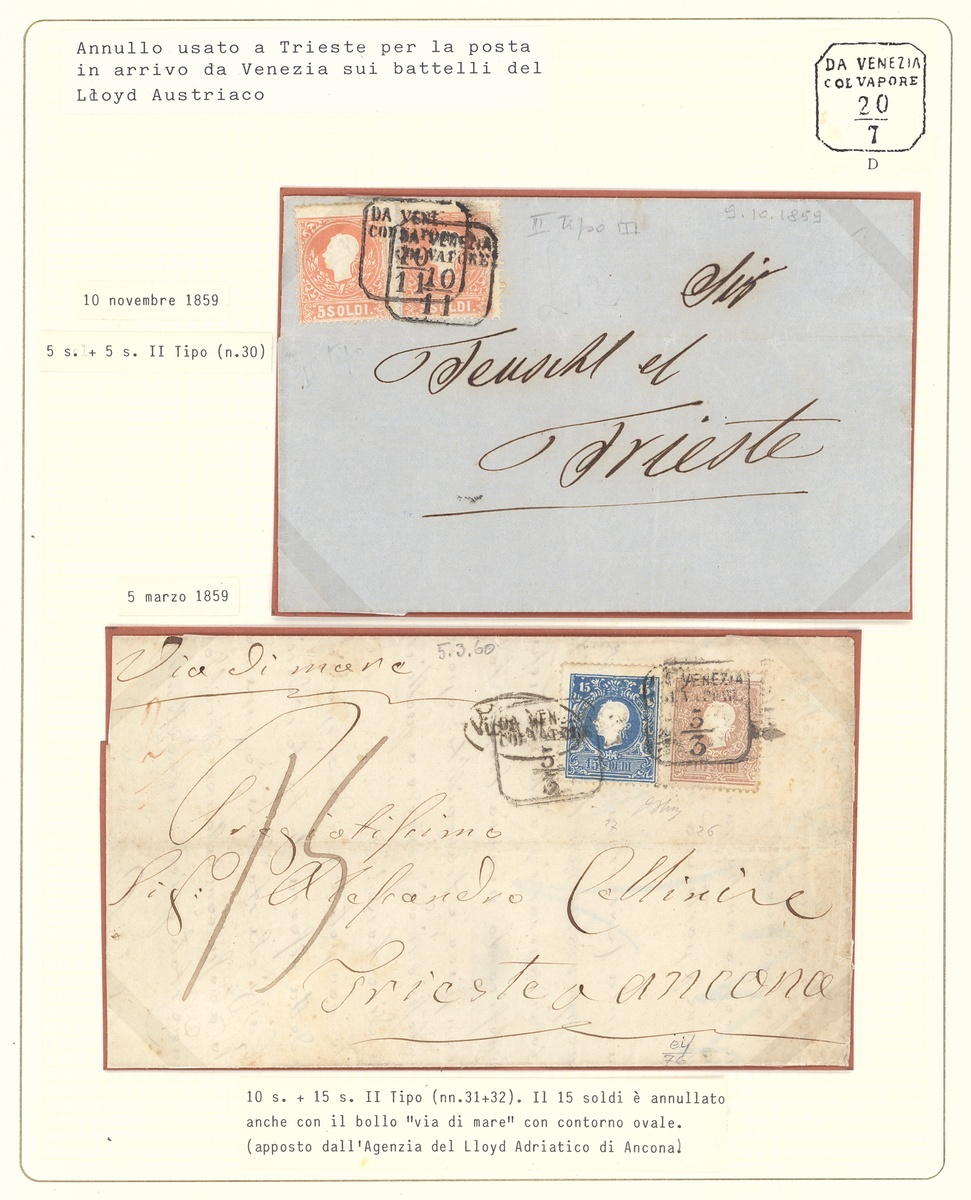 Annullo usato a Trieste per la posta
in arrivo da Venezia sui battelli del
Lloyd Austriaco
DA VENEZIA
COL VAPORE
20
7
D
II tipo III
9.10.1859
DA VENE
COL VAPORE
10
11
DA VENEZIA
COL VAPORE
10
11
5 SOLDI.
SOLDI.
10 novembre 1859
5 s. + 5 s. II Tipo (n.30)
Sir
Teuschl et
Trieste
5 marzo 1859
5.3.60
Via di mare
15
15 SOLDI
VENEZIA
5
3
DA VENE
COL VAPO
5
3
15
Pregiatissimo
Sigr: Alessandro
Trieste o ancona
76
10 s. + 15 s. II Tipo (nn.31+32). Il 15 soldi è annullato
anche con il bollo "via di mare" con contorno ovale.
(apposto dall'Agenzia del Lloyd Adriatico di Ancona)